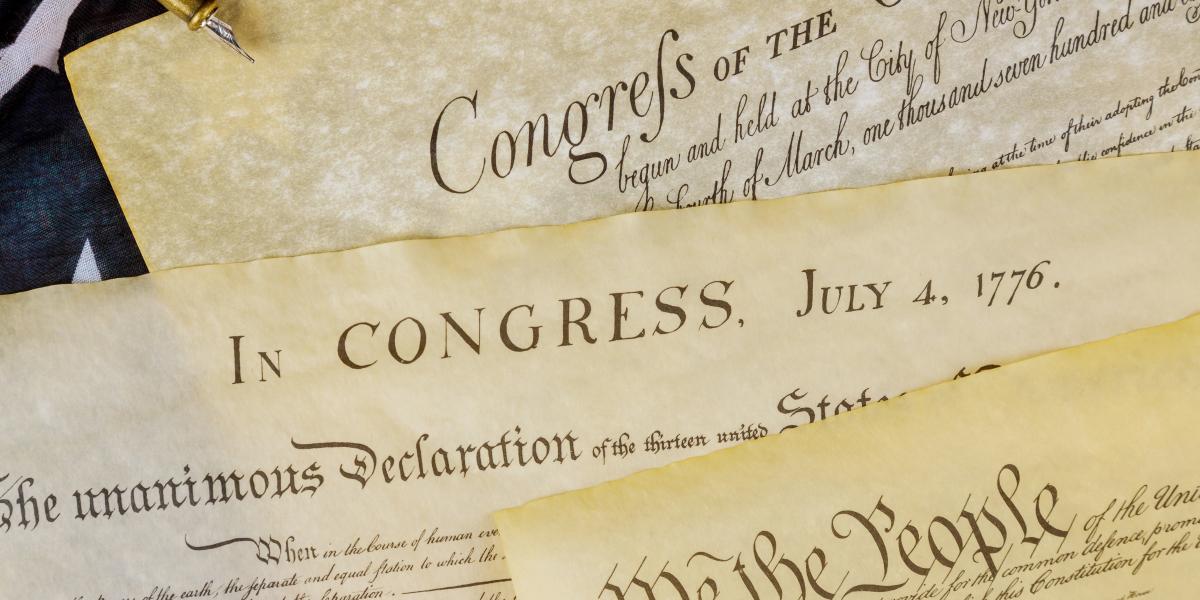 Congreſs OF THE
begun and held at the City of New-York
Fourth of March, one thousand seven hundred and
at the time of their adopting the
confidence in the
In CONGRESS, July 4, 1776.
The unanimous Declaration of the thirteen united States
When in the Course of human
of the earth, the separate and equal station to which the
separation.
We the People of the
provide for the common defence,
this Constitution for the